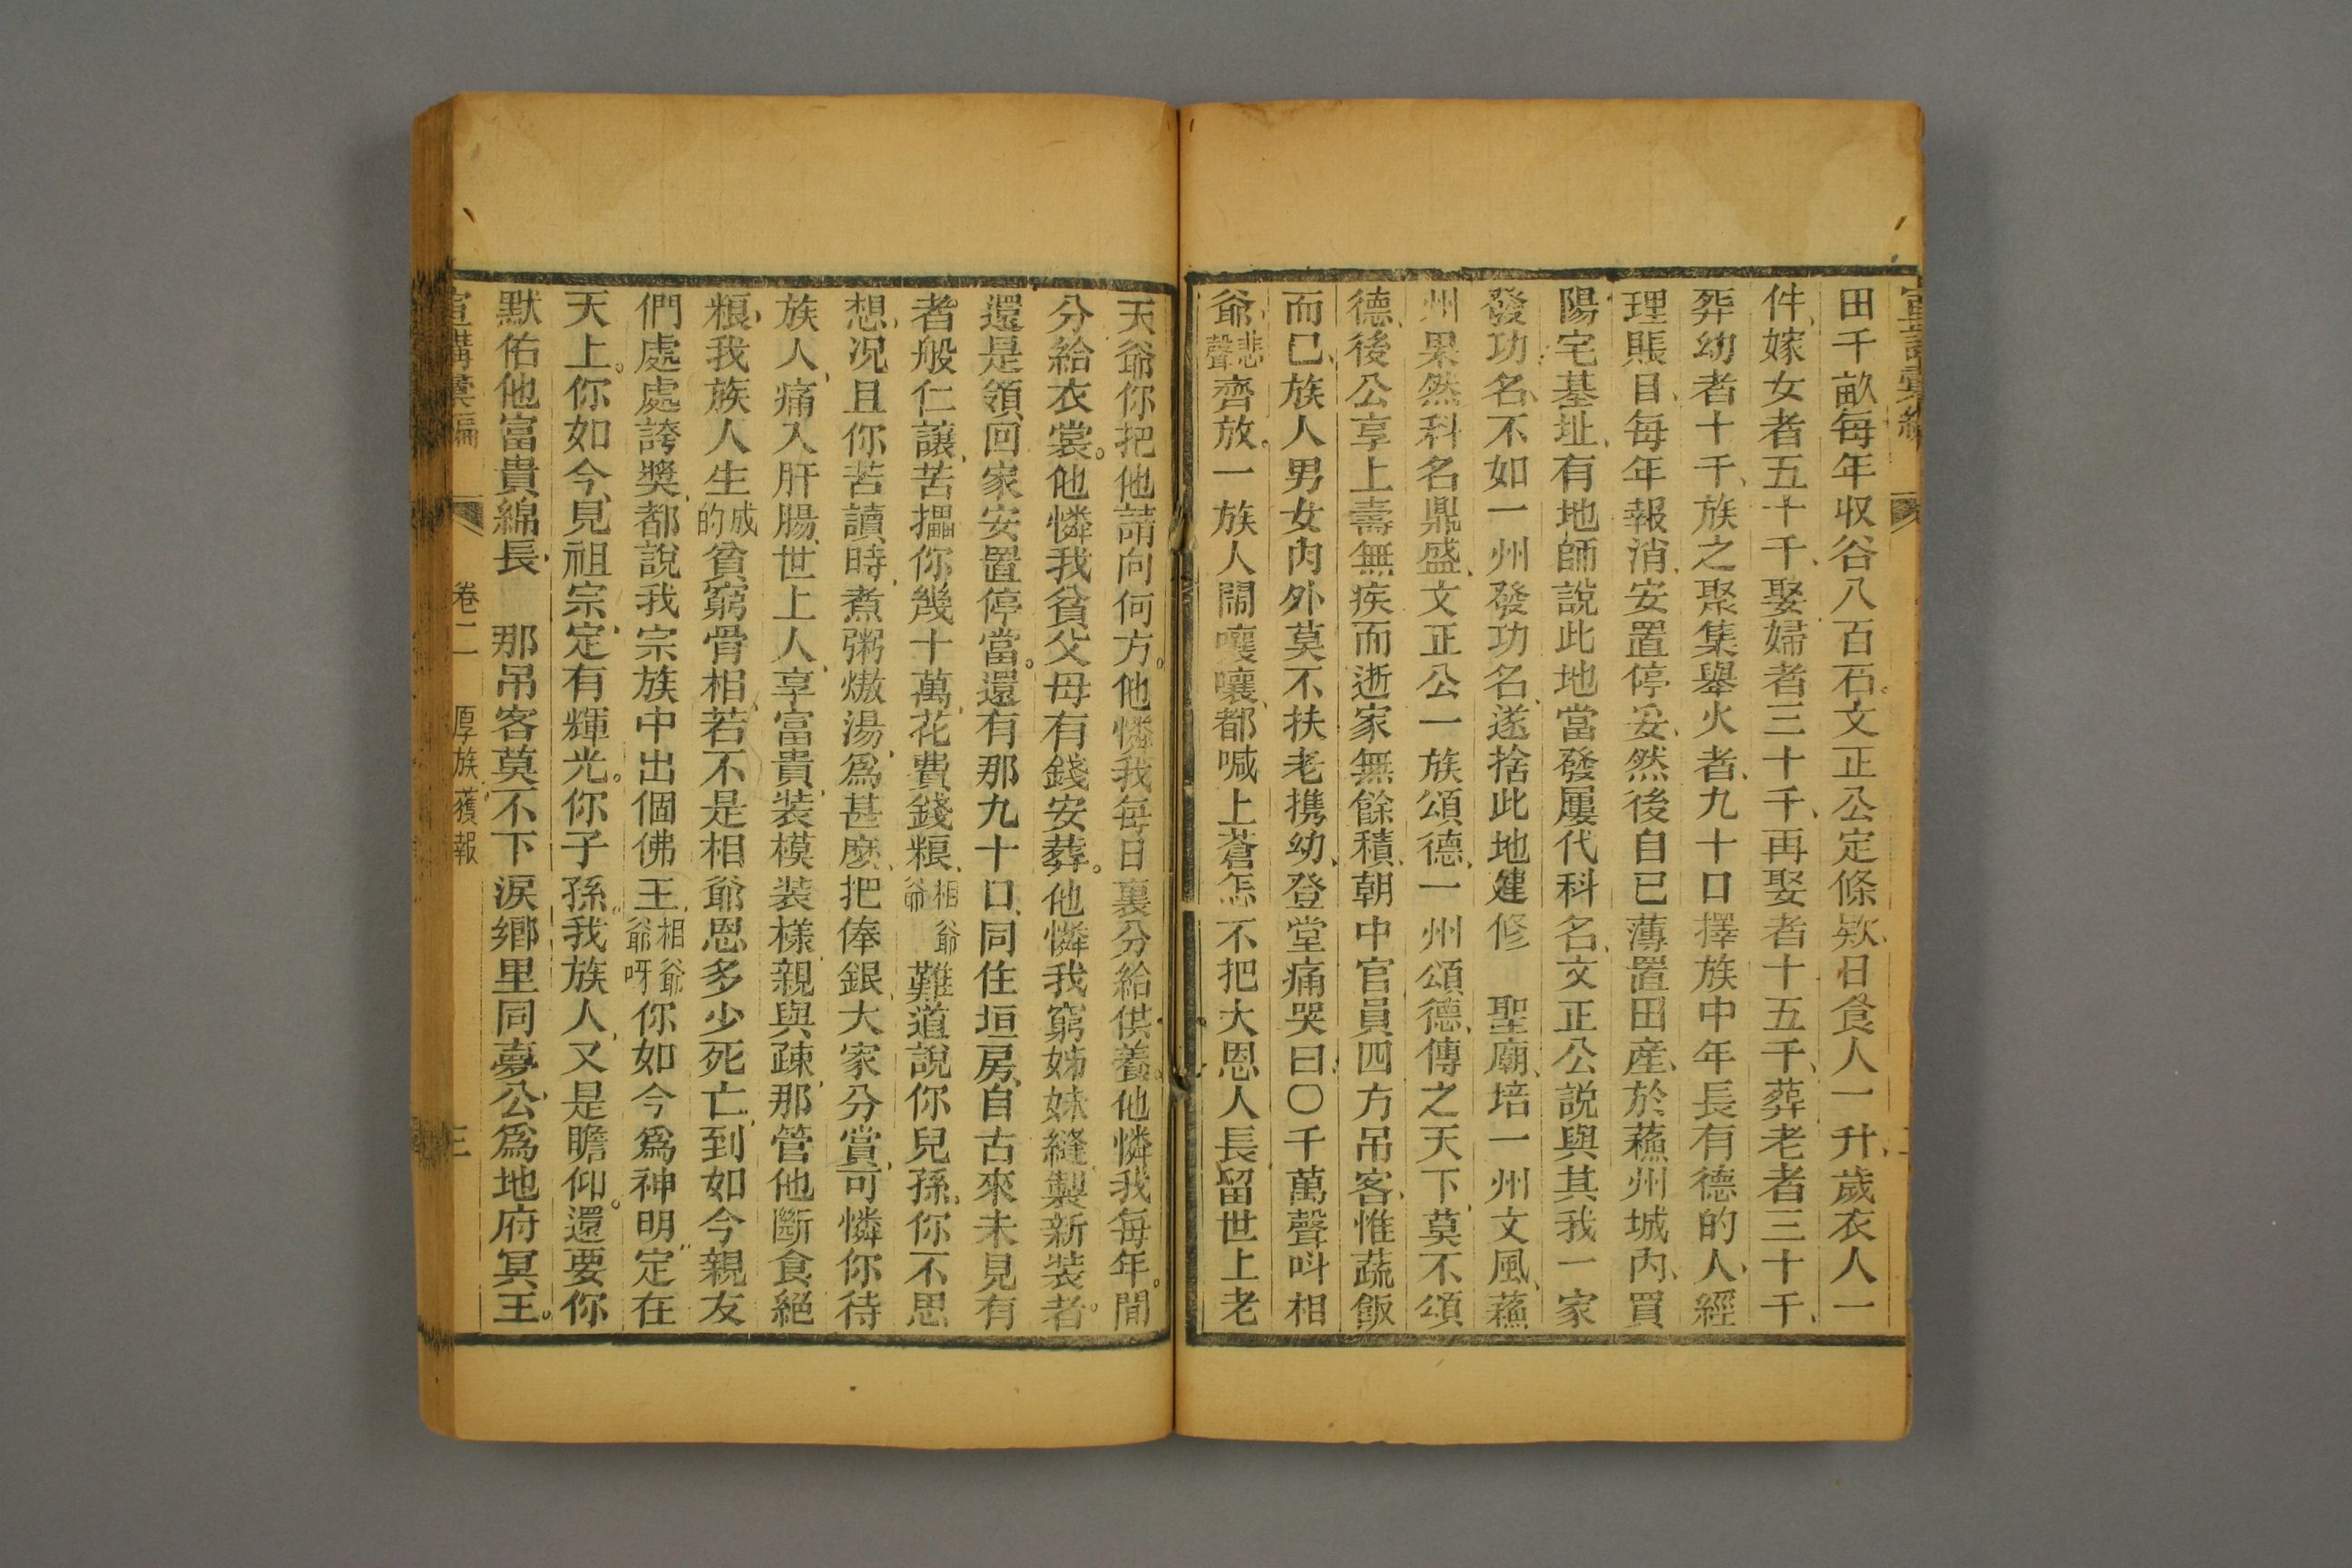 宣講彙編
田千畝每年収谷八百石。文正公定條欵、日食人一升、歲衣人一
件、嫁女者五十千、娶婦者三十千、再娶者十五千、葬老者三十千、
葬幼者十千、族之聚集舉火者、九十口擇族中年長有德的人、經
理賬目、每年報消、安置停妥、然後自已薄置田產、於蘓州城內、買
陽宅基址、有地師說此地當發屢代科名、文正公說與其我一家
發功名、不如一州發功名、遂捨此地建修　聖廟、培一州文風、蘓
州果然科名鼎盛、文正公一族頌德、一州頌德、傳之天下、莫不頌
德、後公享上壽無疾而逝家無餘積、朝中官員四方吊客、惟蔬飯
而已、族人男女內外莫不扶老携幼、登堂痛哭曰、〇千萬聲呌相
爺、悲聲齊放。一族人鬧嚷嚷、都喊上蒼怎不把大恩人長留世上老
天爺你把他請向何方。他憐我每日裏分給供養。他憐我每年。間
分給衣裳。他憐我貧父母有錢安葬。他憐我窮姊妹縫製新裝者。
還是領、回家安置停當。還有那九十口、同住垣房、自古來未見有
者般仁讓、苦攂你幾十萬、花費錢粮、相爺爺難道說你兒孫、你不思
想、况且你苦讀時、煮粥熬湯、爲甚麽、把俸銀、大家分賞、可憐你待
族人、痛入肝腸、世上人、享富貴、装模装樣、親與疎、那管他斷食絕
粮、我族人生成的貧窮骨相、若不是相爺恩多少死亡、到如今親友
們處處誇獎、都說我宗族中出個佛王、相爺爺呀你如今爲神明、定在
天上。你如今、見祖宗、定有輝光。你子孫、我族人、又是瞻仰。還要你
默佑他富貴綿長、　那吊客莫不下淚鄉里同夢、公爲地府冥王。
宣講彙編　卷二　厚族獲報　三